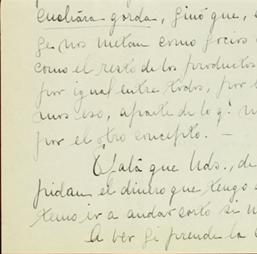 cuchára gorda, sinó que, s
se nos metan como socios
como el resto de los productos
por igual entre todos, por
mos eso, aparte de lo q! n
por el otro concepto. —
Ojalá que Uds., de
pidan el dinero que tengo
temo ir a andar corto si n
A ver si prende la